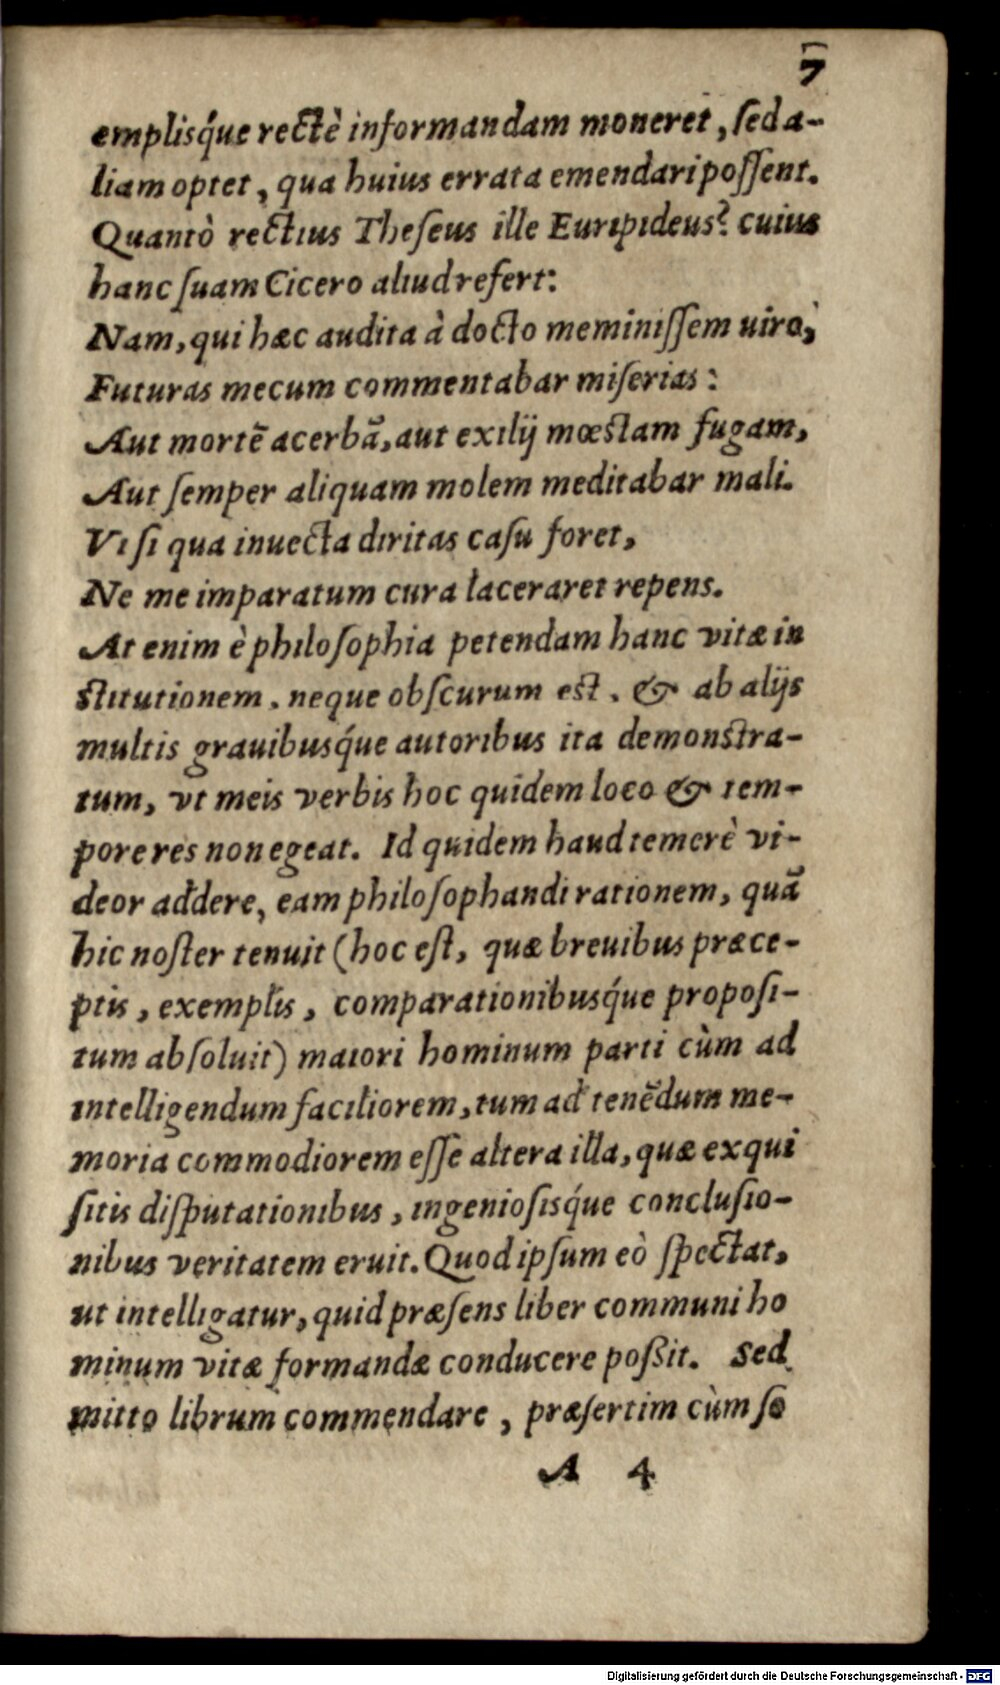 7
emplisq́ue rectè informandam moneret, ſed a-
liam optet, qua huius errata emendari poſſent.
Quantò rectius Theſeus ille Euripideus? cuius
hanc ſuam Cicero aliud refert:
Nam, qui hæc audita à docto meminiſſem uiro,
Futuras mecum commentabar miſerias:
Aut mortē acerbā, aut exilij mœstam fugam,
Aut ſemper aliquam molem meditabar mali.
Vt ſi qua inuecta diritas caſu foret,
Ne me imparatum cura laceraret repens.
At enim è philoſophia petendam hanc vitæ in
stitutionem, neque obſcurum est, & ab alijs
multis grauibusq́ue autoribus ita demonstra-
tum, vt meis verbis hoc quidem loco & tem-
pore res non egeat. Id quidem haud temerè vi-
deor addere, eam philoſophandi rationem, quā
hic noſter tenuit (hoc eſt, quæ breuibus præce-
ptis, exemplis, comparationibusq́ue propoſi-
tum abſoluit) maiori hominum parti cùm ad
intelligendum faciliorem, tum ad tenēdum me-
moria commodiorem eſſe altera illa, quæ exqui
ſitis diſputationibus, ingenioſisq́ue concluſio-
nibus veritatem eruit. Quod ipſum eò ſpectat,
ut intelligatur, quid præſens liber communi ho
minum vitæ formandæ conducere poßit. Sed
mitto librum commendare, præſertim cùm ſe
A 4
Digitalisierung gefördert durch die Deutsche Forschungsgemeinschaft - DFG